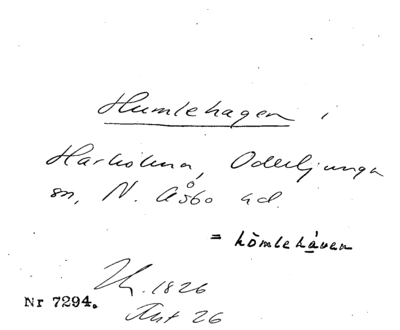 Humlehagen i
Harholma, Oderljunga
sn, N. Åsbo hd.
= hömlehåven
Lh. 1826
Akt 26
Nr 7294.